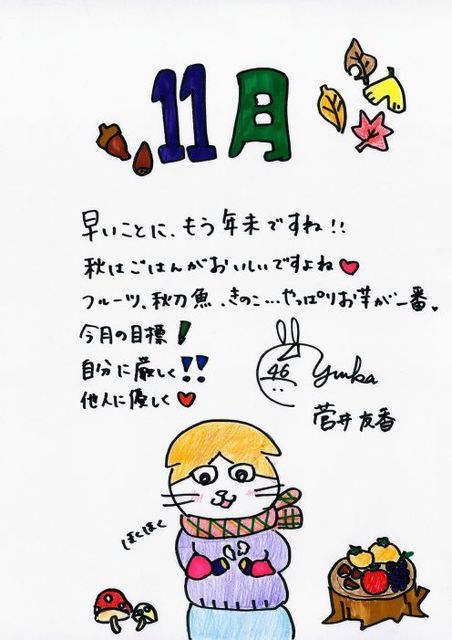 11月
早いことに、もう年末ですね!!
秋はごはんがおいしいですよね♥
フルーツ、秋刀魚、きのこ...やっぱりお芋が一番。
今月の目標!
自分に厳しく!!
他人に優しく♥
46
Yuuka
菅井友香
ほくほく